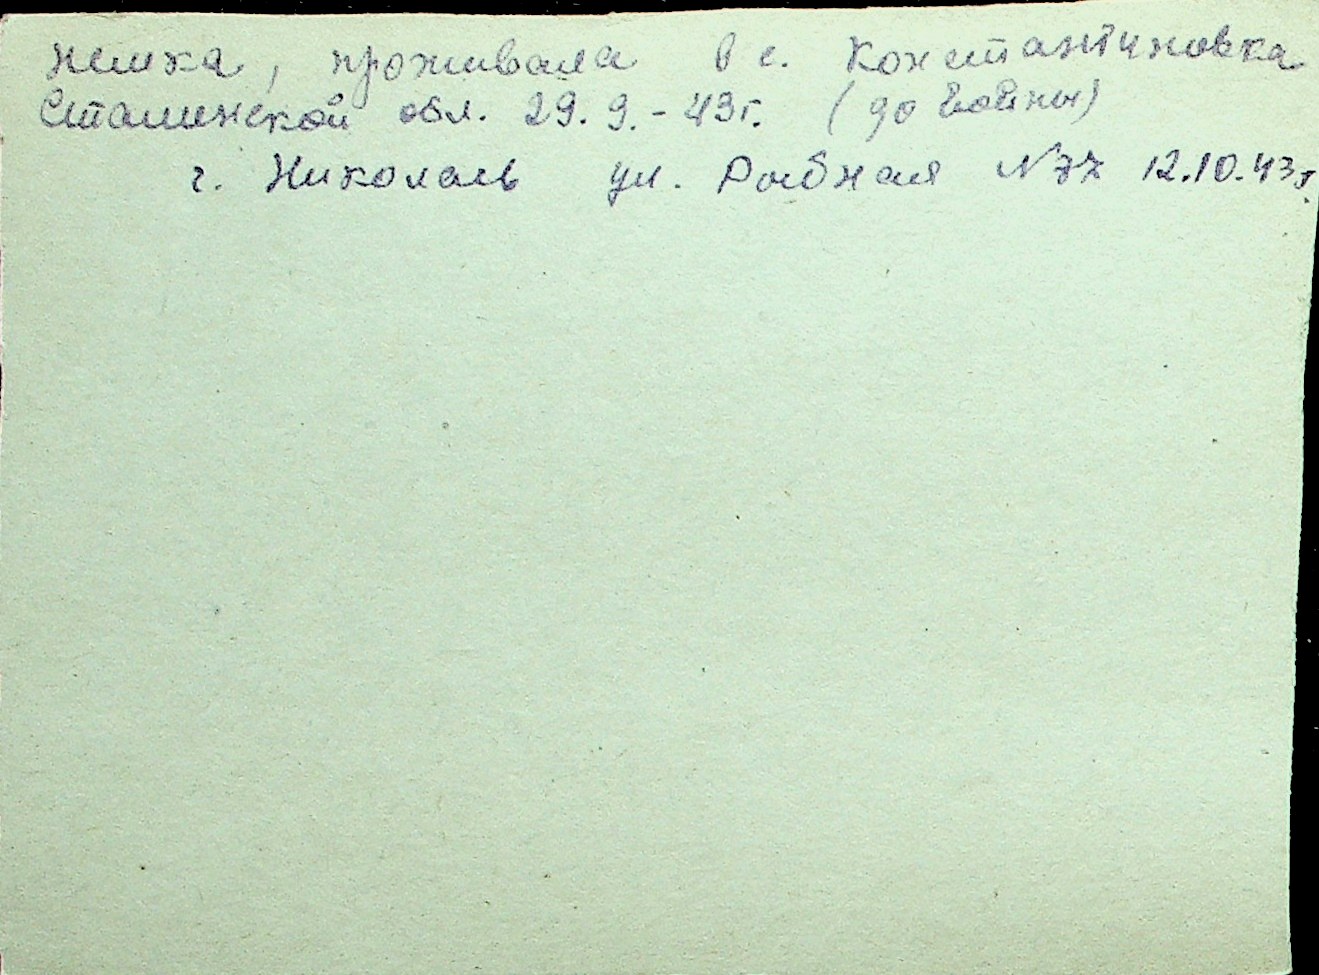 немка, проживала в с. Константиновка
Сталинской обл. 29. 9. - 43г. (до войны)
г. Николаев ул. Рыбная № 77 12.10.43г